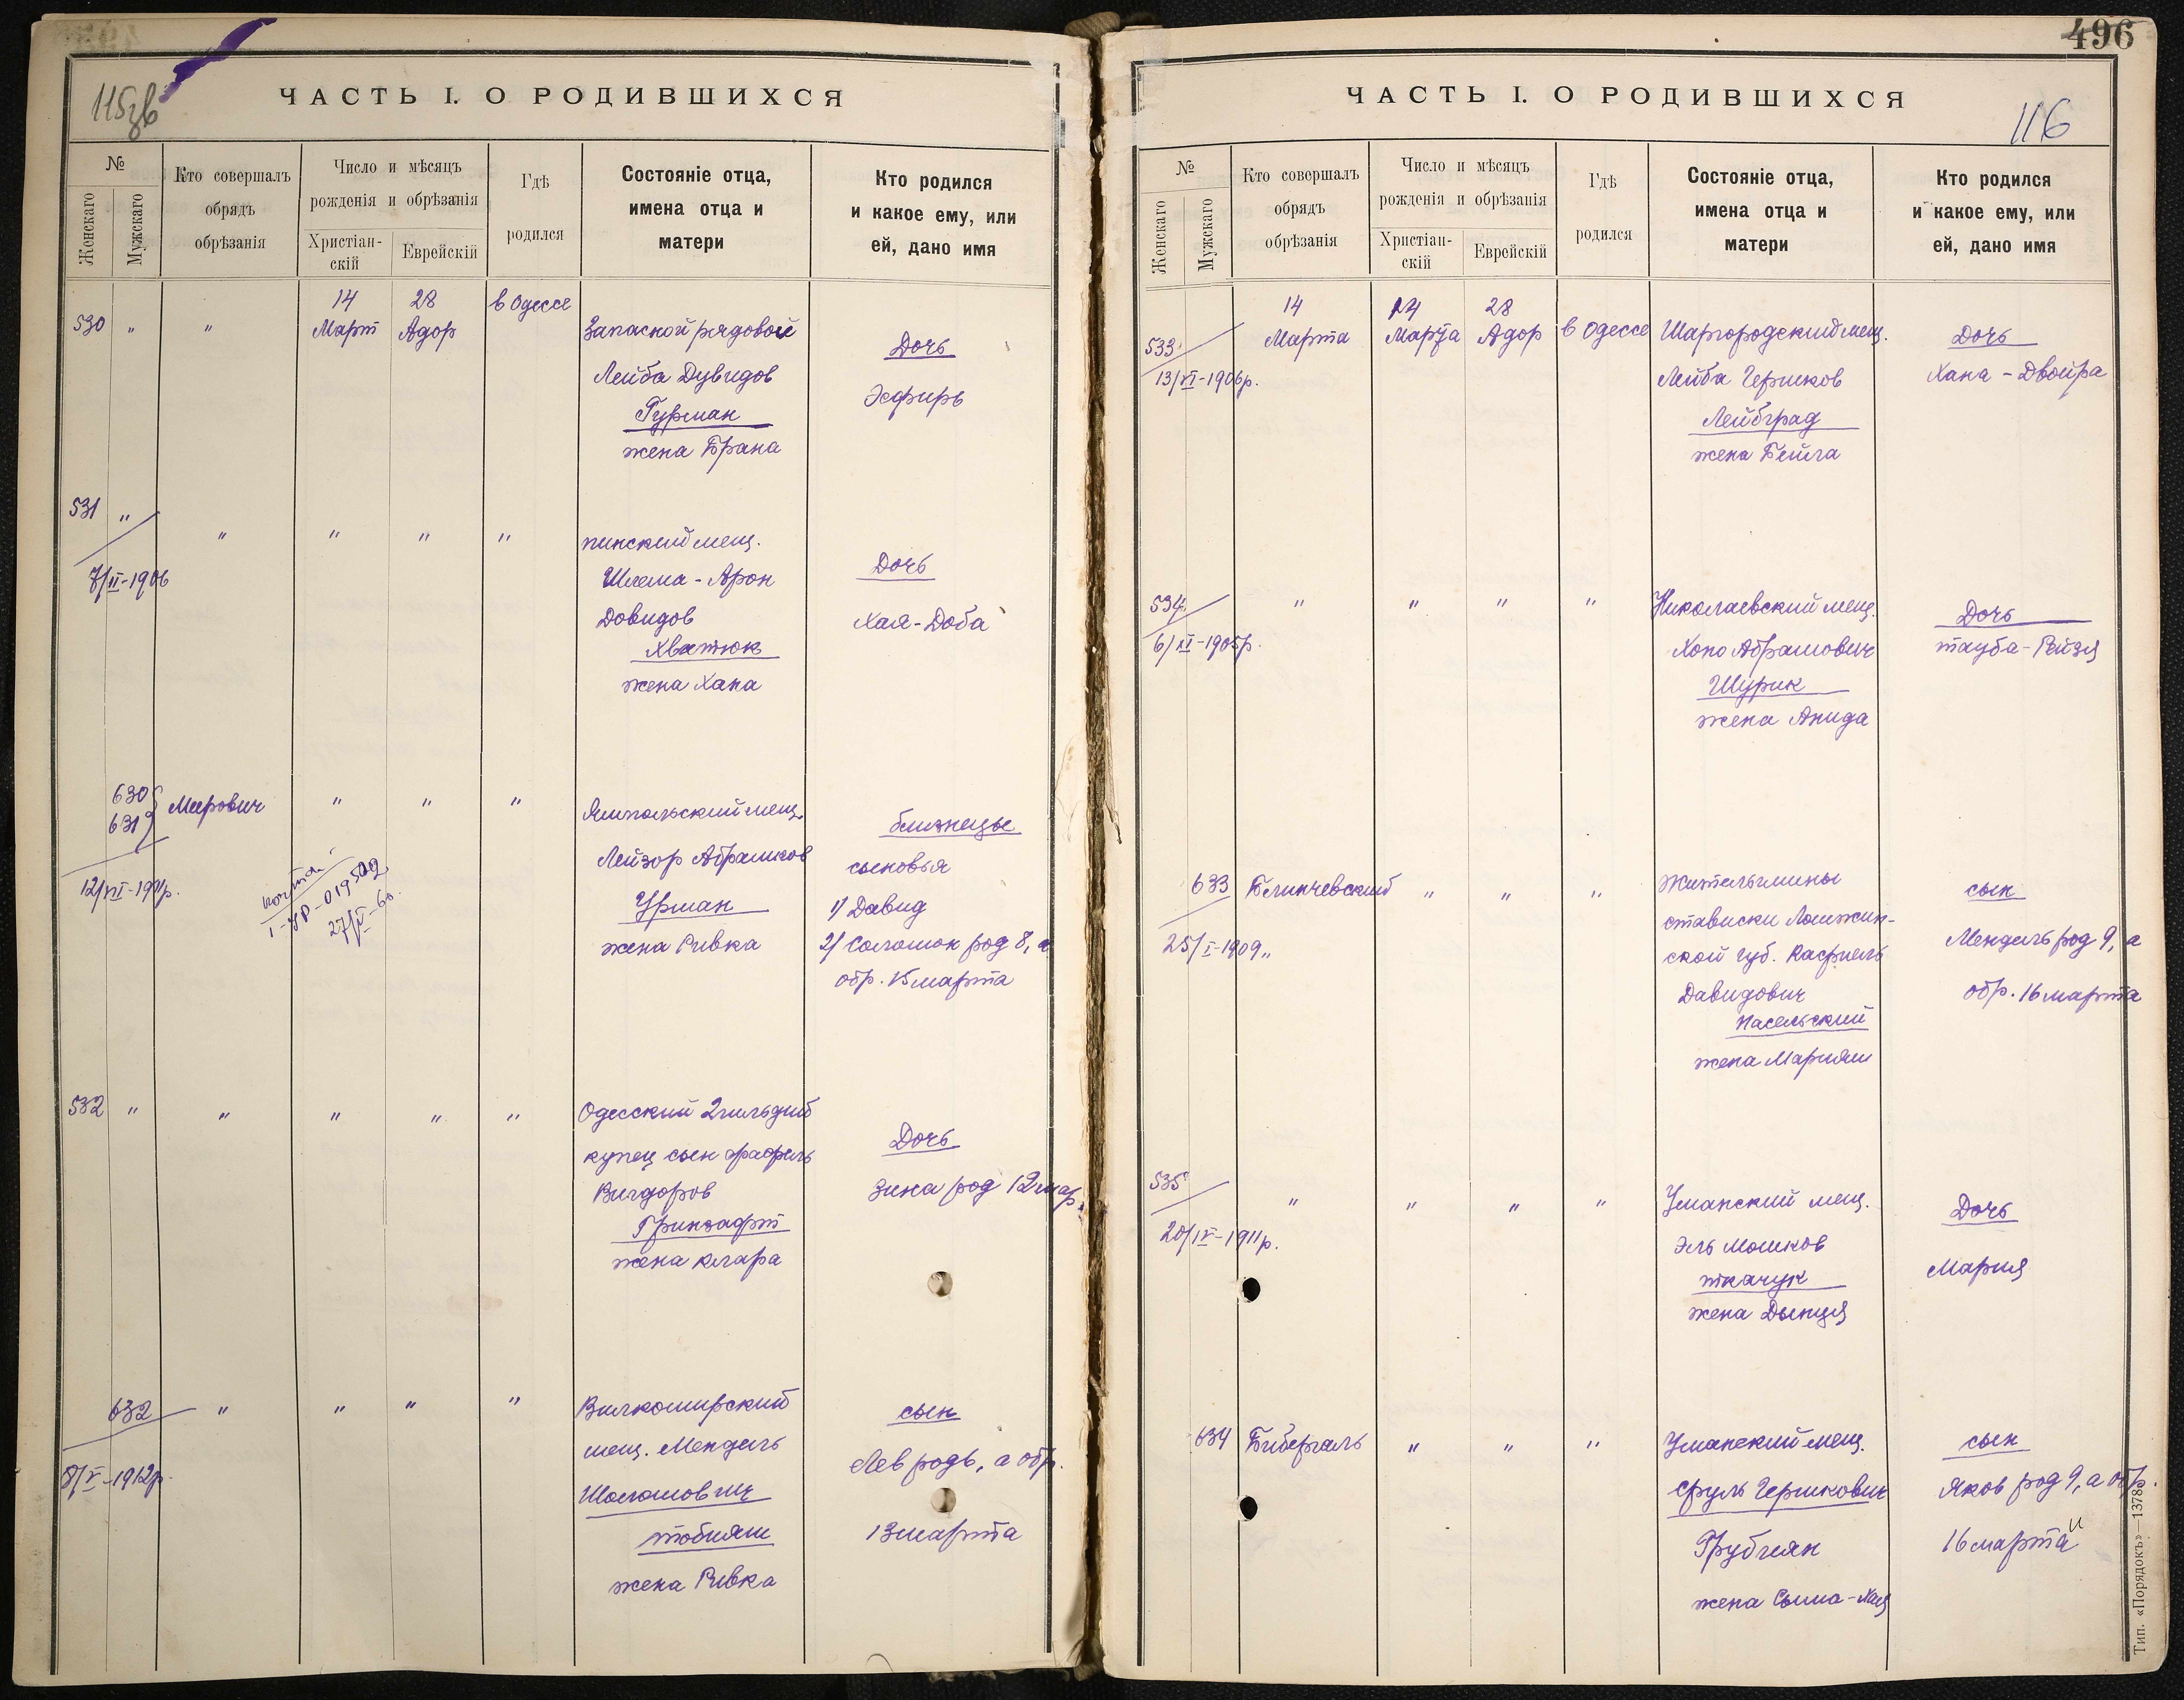 115зв
ЧАСТЬ I. О РОДИВШИХСЯ
№
Женскаго
Мужскаго
Кто совершалъ
обрядъ
обрѣзанія
Число и мѣсяцъ
рожденія и обрѣзанія
Христіан-
скій
Еврейскій
Гдѣ
родился
Состояніе отца,
имена отца и
матери
Кто родился
и какое ему, или
ей, дано имя
530 " " 14 Март 28 Адор в Одессе
Запасной рядовой
Лейба Дувидов
Гурман
жена Брана
Дочь
Эсфирь
531 " " " " "
7/II-1906
пинский мещ.
Шлема-Арон
Довидов
Хватюк
жена Хана
Дочь
Хая-Доба
630
631
Меерович " " "
12/VII-1911р.
I-УР-019502
27/V-60
Ямпольский мещ.
Лейзор Абрамков
Урман
жена Ривка
близнецы
сыновья
1/ Давид
2/ Соломон род 8, а
обр. 15 марта
532 " " " " "
Одесский 2 гильдий
купец сын Рафаил
Вигдоров
Гринзафт
жена Клара
Дочь
Зина род 12 мар.
632 " " " "
8/V-1912р.
Вилкомирский
мещ. Мендель
Шоломович
тобияш
жена Ривка
сын
Лев род 6, а обр.
13 марта
496
ЧАСТЬ I. О РОДИВШИХСЯ
116
№
Женскаго
Мужскаго
Кто совершалъ
обрядъ
обрѣзанія
Число и мѣсяцъ
рожденія и обрѣзанія
Христіан-
скій
Еврейскій
Гдѣ
родился
Состояніе отца,
имена отца и
матери
Кто родился
и какое ему, или
ей, дано имя
533 14 Марта 14 Марта 28 Адор в Одессе
13/VI-1906р.
Шаргородский мещ.
Лейба Гершков
Лейбград
жена Бейла
Дочь
Хана-Двойра
534 " " " "
6/XI-1905р.
Николаевский мещ.
Хоно Абрамович
Шурик
жена Анида
Дочь
тауба-Рейзя
633 Блинчевский " " "
25/I-1909"
жительмины
стависки Ломжин-
ской губ. Касриель
Давидович
Насельский
жена Марияш
сын
Мендель род 9, а
обр. 16 марта
535 " " " "
20/IV-1911р.
Уманский мещ.
Эль Мошков
ткачук
жена Дынця
Дочь
Мария
634 Бибергаль " " "
Уманский мещ.
Сруль Гершкович
Грубиян
жена Сыма-Хая
сын
Яков род 9, а обр.
16 марта
Тип. «Порядокъ»—13786